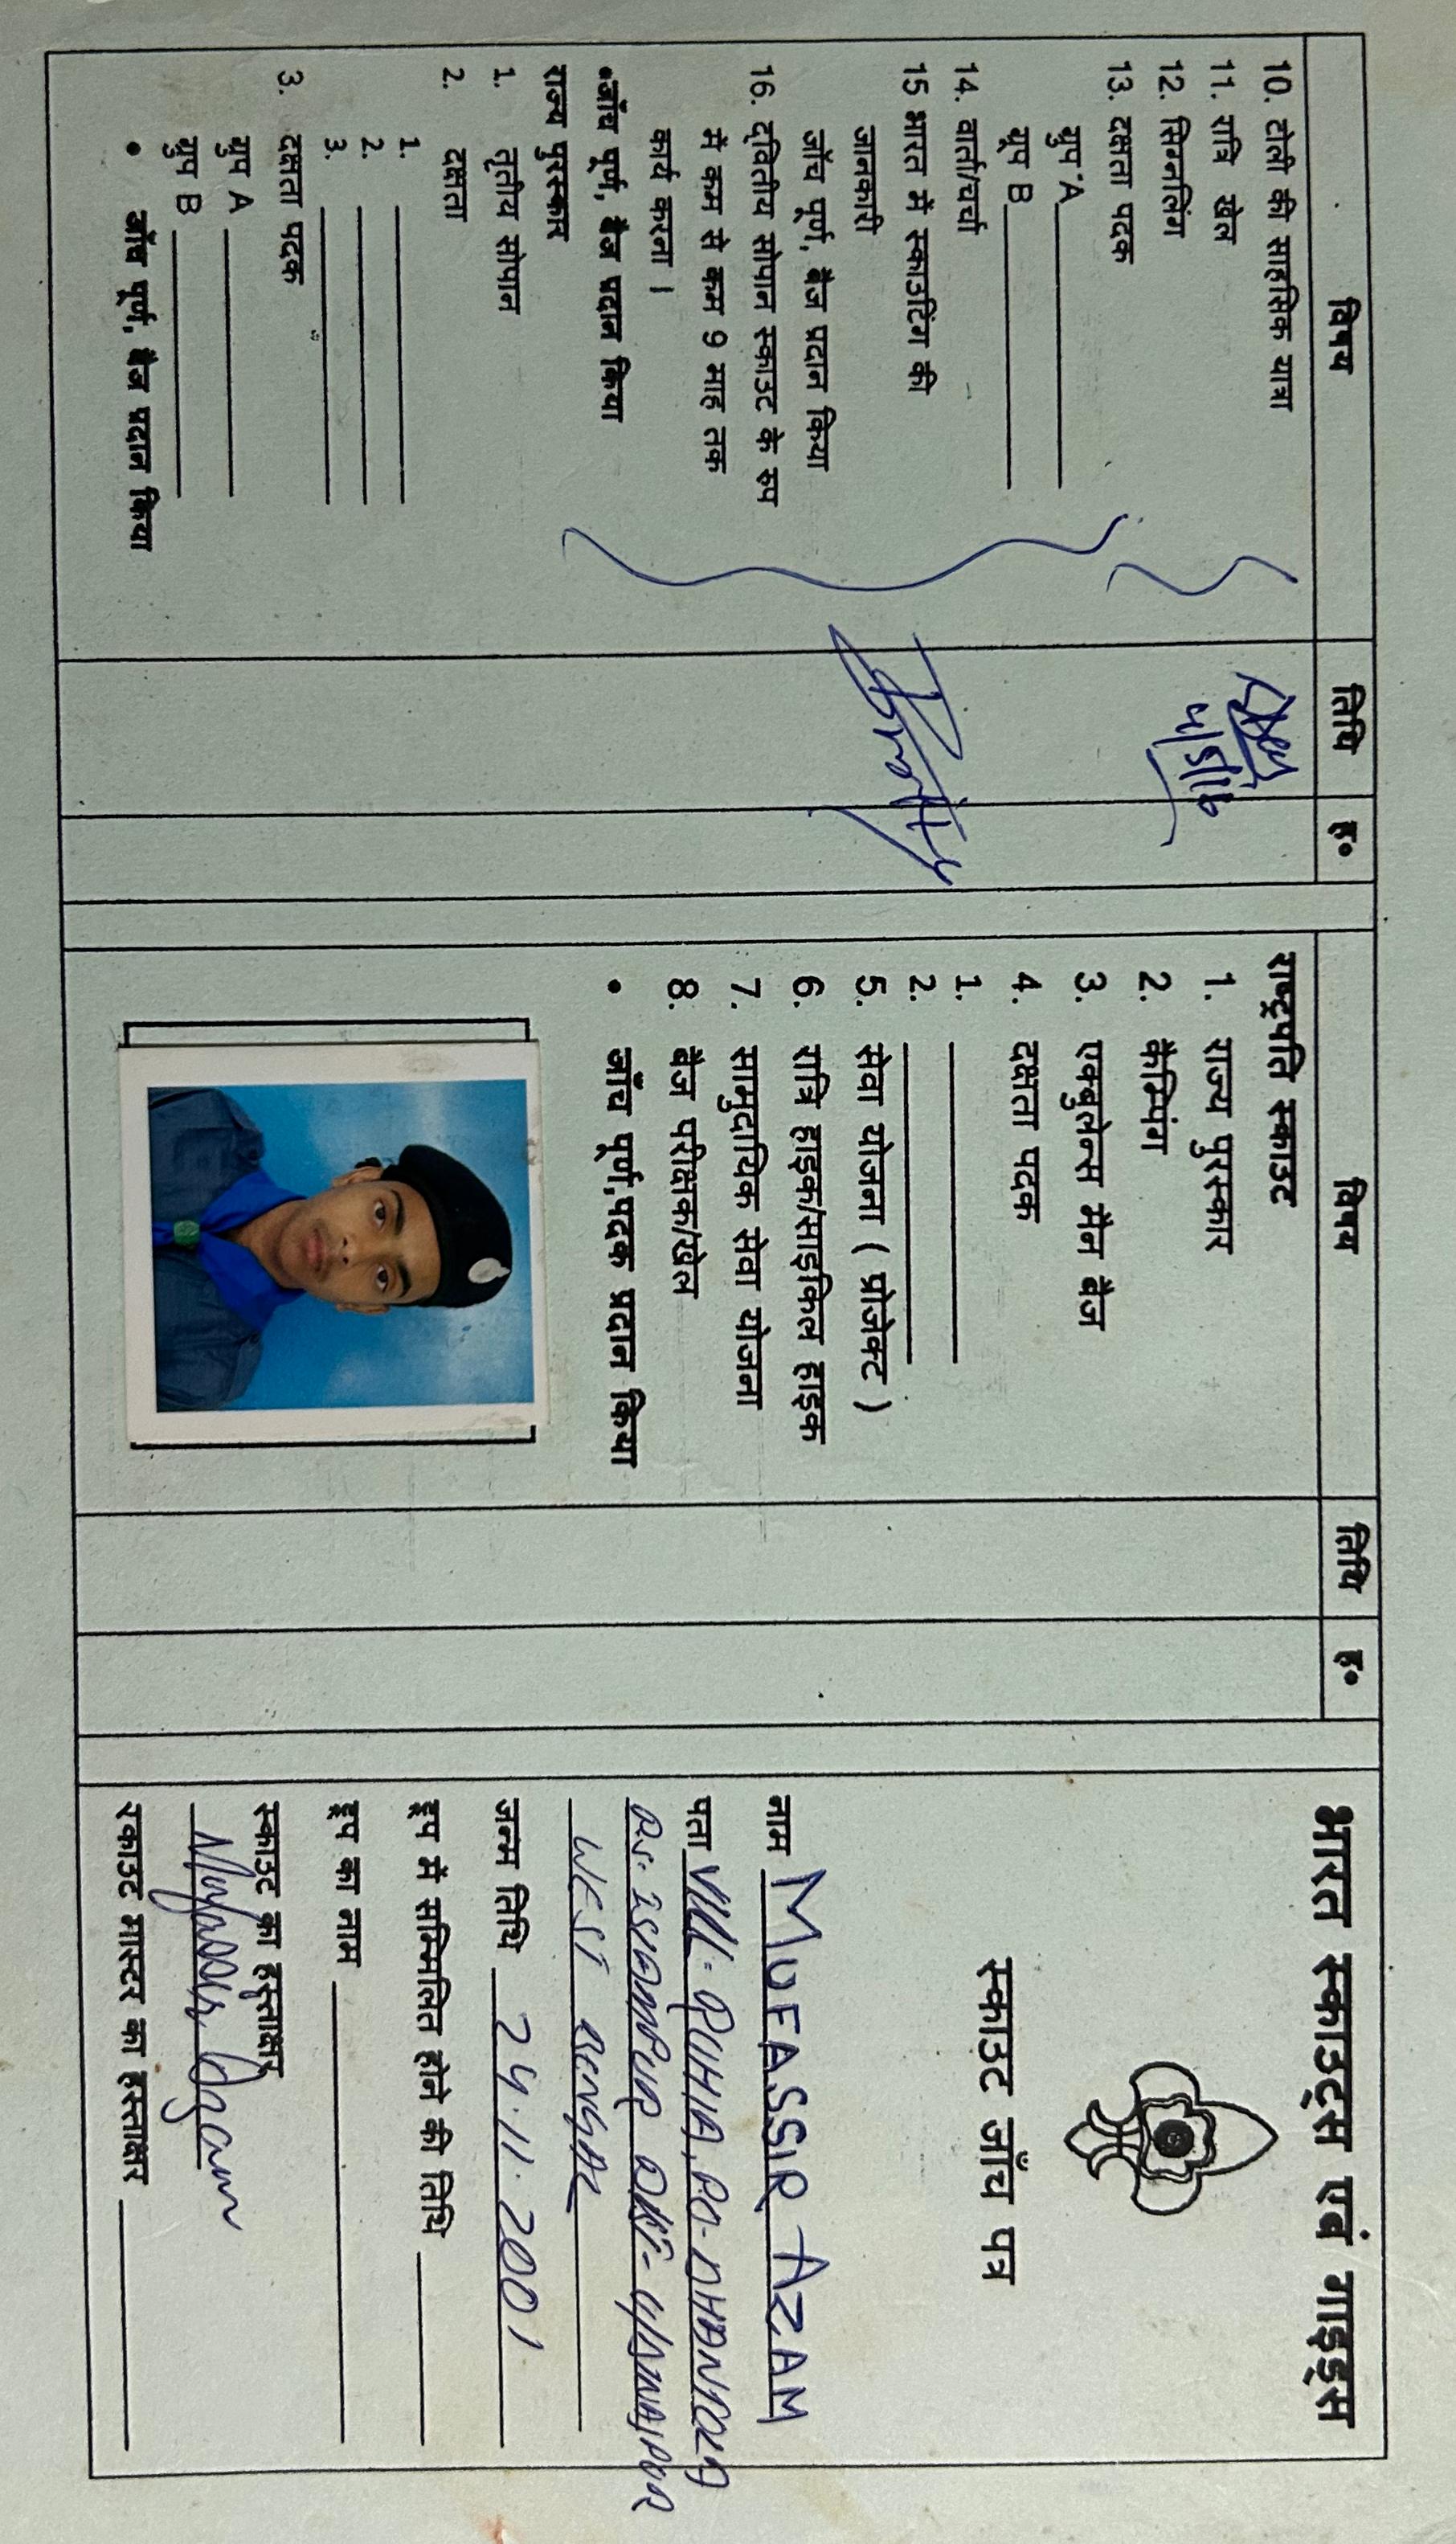 विषय
तिथि
ह०
10. टोली की साहसिक यात्रा
11. रात्रि खेल
12. सिगनलिंग
13. दक्षता पदक
ग्रुप A
ग्रुप B
14. वार्ता/चर्चा
15 भारत में स्काउटिंग की
जानकारी
जाँच पूर्ण, बैज प्रदान किया
16. द्वितीय सोपान स्काउट के रुप
में कम से कम 9 माह तक
कार्य करना ।
•जाँच पूर्ण, बैज प्रदान किया
राज्य पुरस्कार
1. तृतीय सोपान
2. दक्षता
1.
2.
3.
3. दक्षता पदक
ग्रुप A
ग्रुप B
• जाँच पूर्ण, बैज प्रदान किया
4/5/16
विषय
तिथि
ह०
राष्ट्रपति स्काउट
1. राज्य पुरस्कार
2. कैम्पिंग
3. एम्बुलेन्स मैन बैज
4. दक्षता पदक
1.
2.
5. सेवा योजना ( प्रोजेक्ट )
6. रात्रि हाइक/साइकिल हाइक
7. सामुदायिक सेवा योजना
8. बैज परीक्षक/खेल
• जाँच पूर्ण,पदक प्रदान किया
भारत स्काउट्स एवं गाइड्स
स्काउट जाँच पत्र
नाम MUFASSIR AZAM
पता VILL- PO- DHANTOLA
P.S- ISLAMPUR DIST- U/DINAJPUR
WEST BENGAL
जन्म तिथि 24.11.2001
ट्रूप में सम्मिलित होने की तिथि
ट्रूप का नाम
स्काउट का हस्ताक्षर
Mufassir Azam
स्काउट मास्टर का हस्ताक्षर